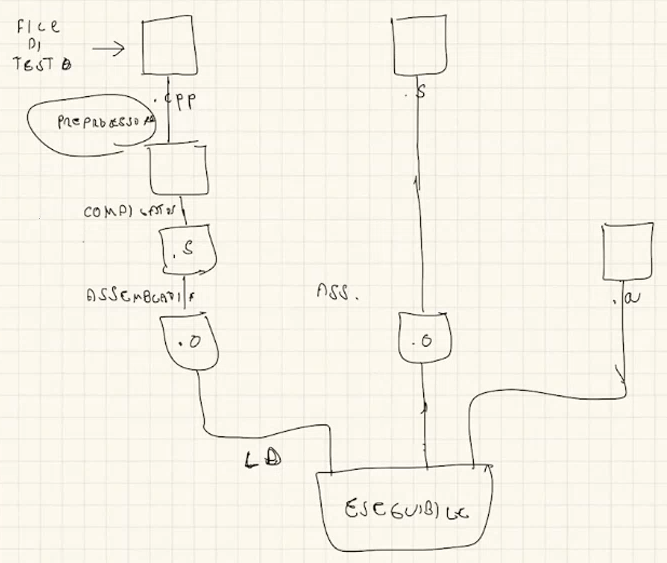 FILE
DI
TESTO
.cpp
PREPROCESSORE
COMPILATORE
.S
ASSEMBLATORE
.O
LD
.S
ASS.
.O
.a
ESEGUIBILE